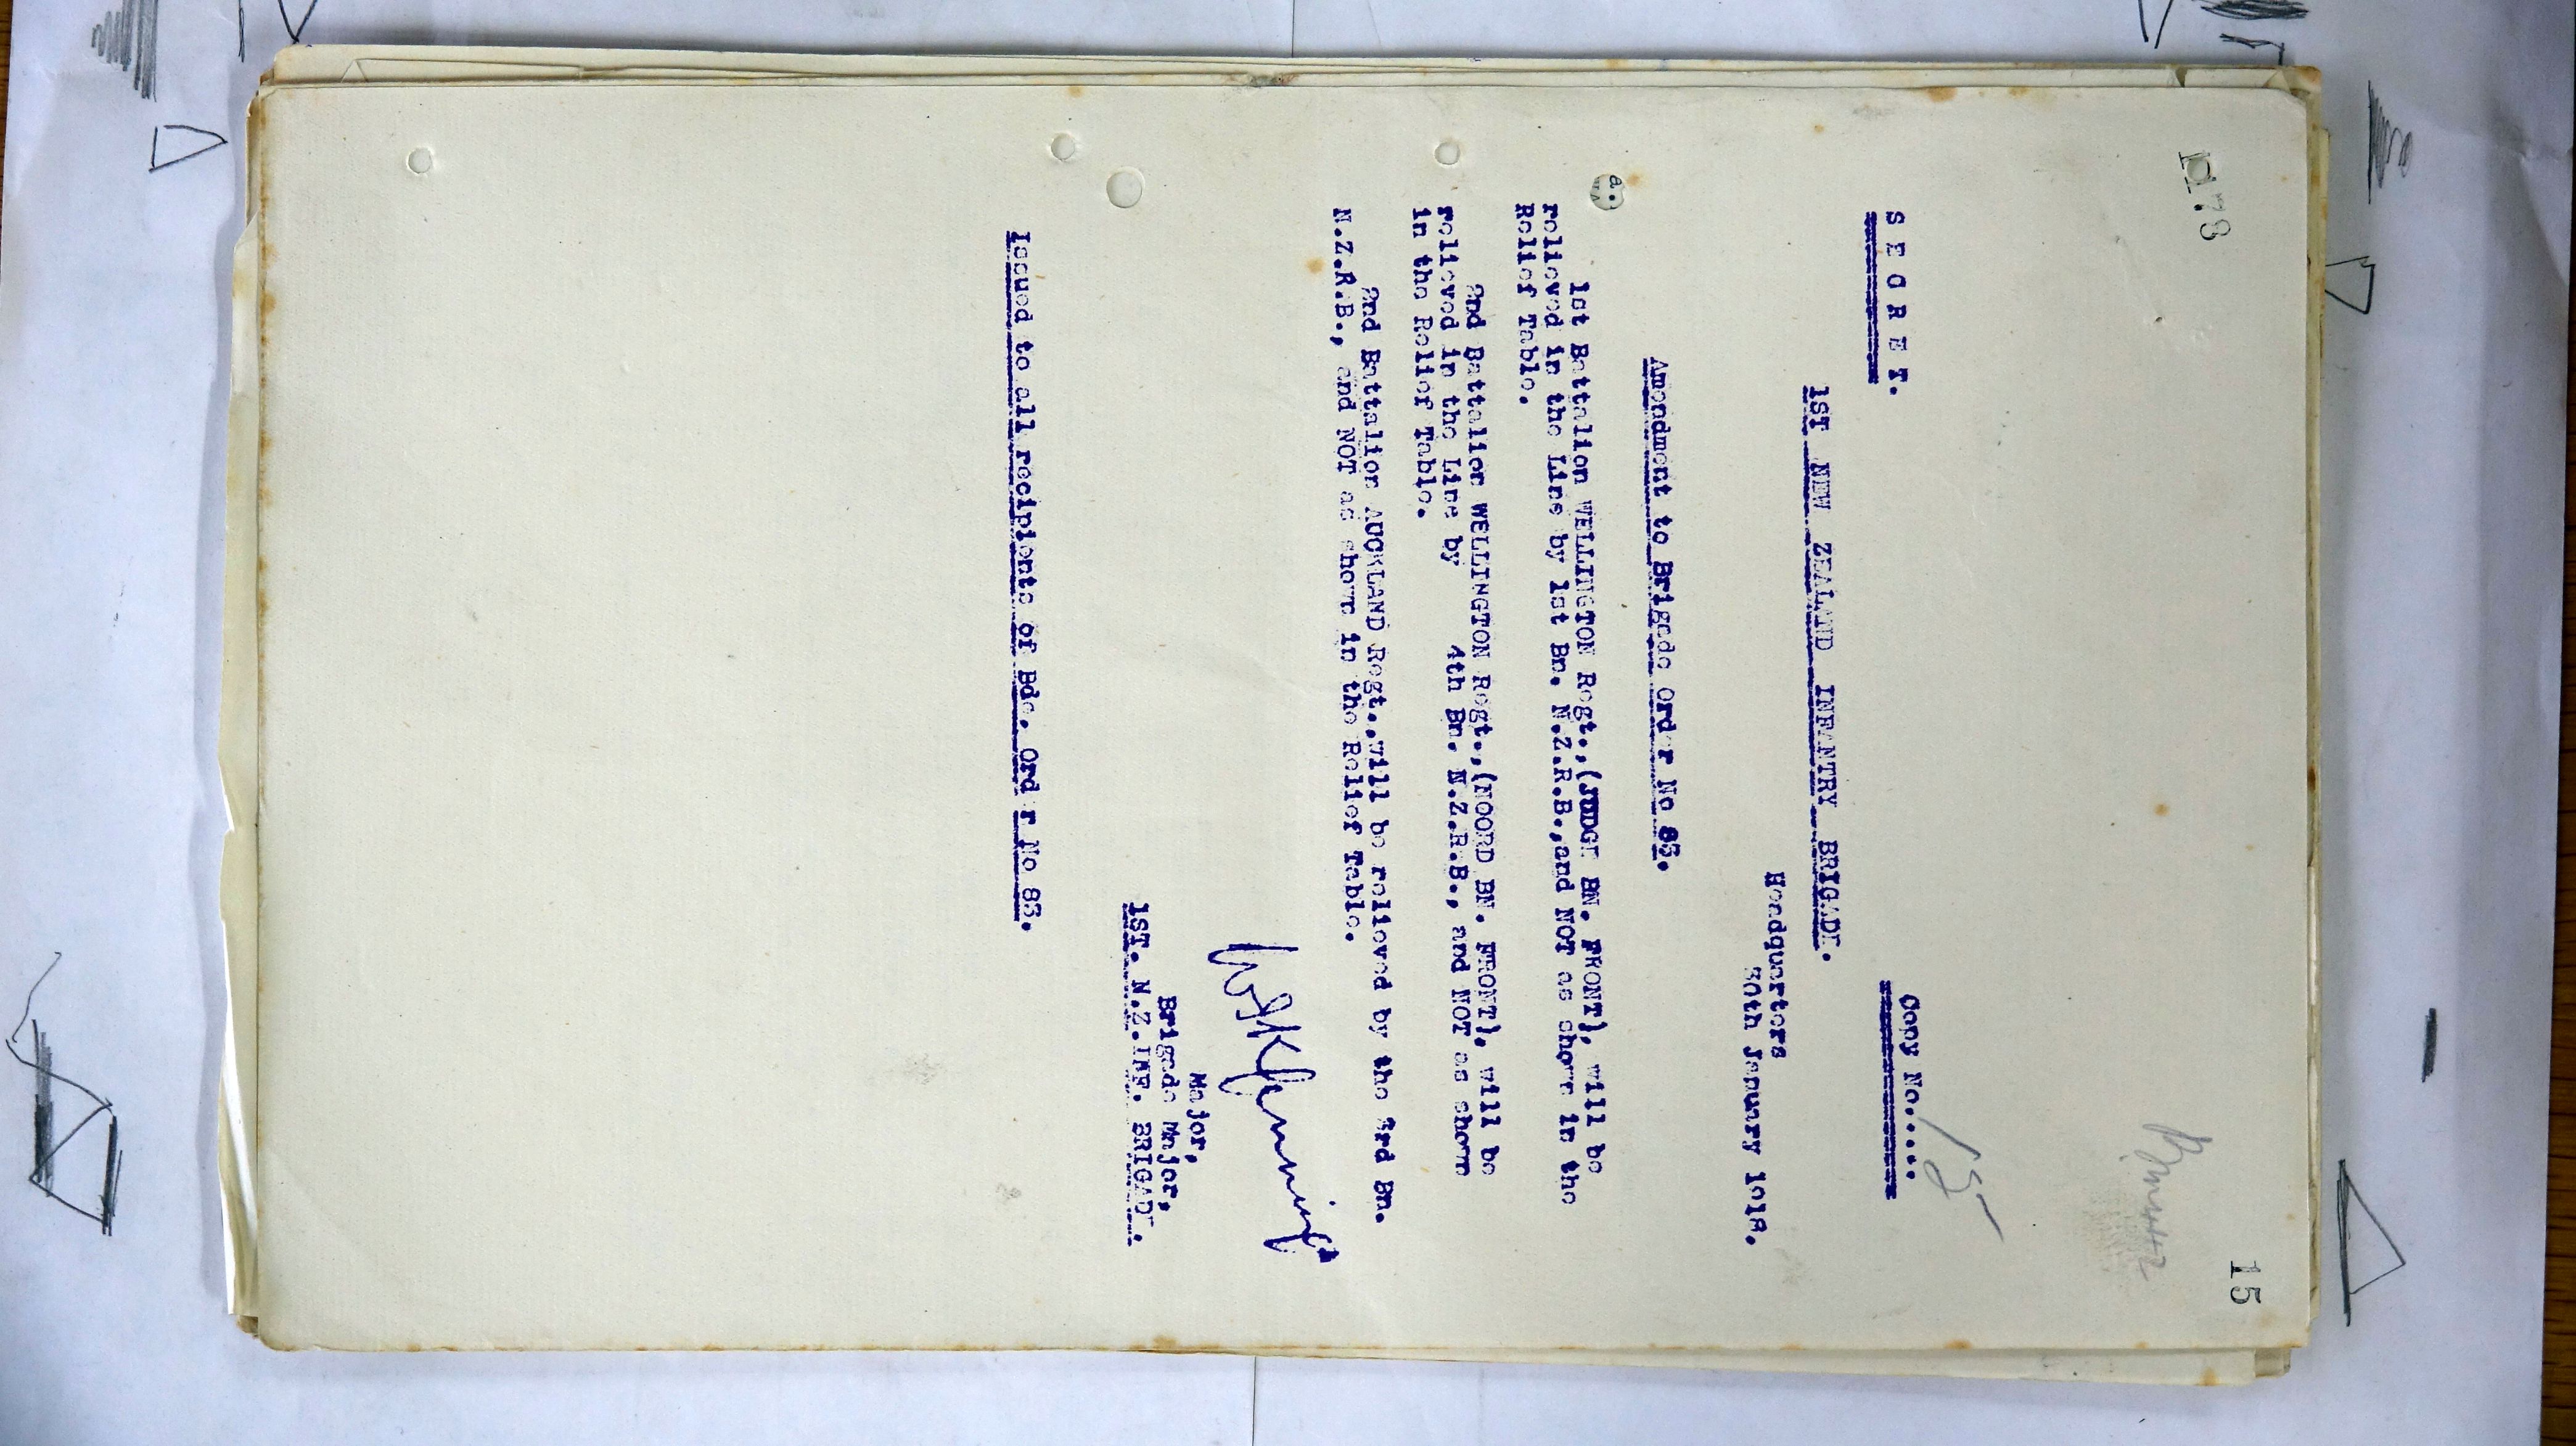 173
15
S E C R E T.
Copy No......
15
1ST NEW ZEALAND INFANTRY BRIGADE.
Headquarters
30th January 1918.
Amendment to Brigade Order No 83.
a.
1st Battalion WELLINGTON Regt.,(JUDGE BN. FRONT), will be
relieved in the Line by 1st Bn. N.Z.R.B.,and NOT as shown in the
Relief Table.
2nd Battalion WELLINGTON Regt.,(NOORD BN. FRONT), will be
relieved in the Line by 4th Bn. N.Z.R.B., and NOT as shown
in the Relief Table.
2nd Battalion AUCKLAND Regt.,will be relieved by the 3rd Bn.
N.Z.R.B., and NOT as shown in the Relief Table.
Major,
Brigade Major,
1ST. N.Z.INF. BRIGADE.
Issued to all recipients of Bde. Order No 83.